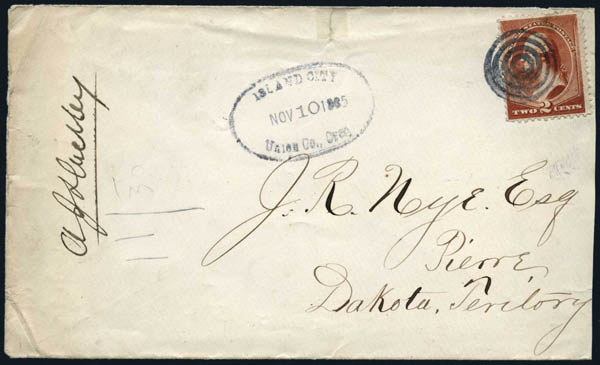 ISLAND CITY
NOV 10 1885
UNION CO., OREG.
TWO 2 CENTS
J. R. Nye. Esq
Pierre,
Dakota, Teritory